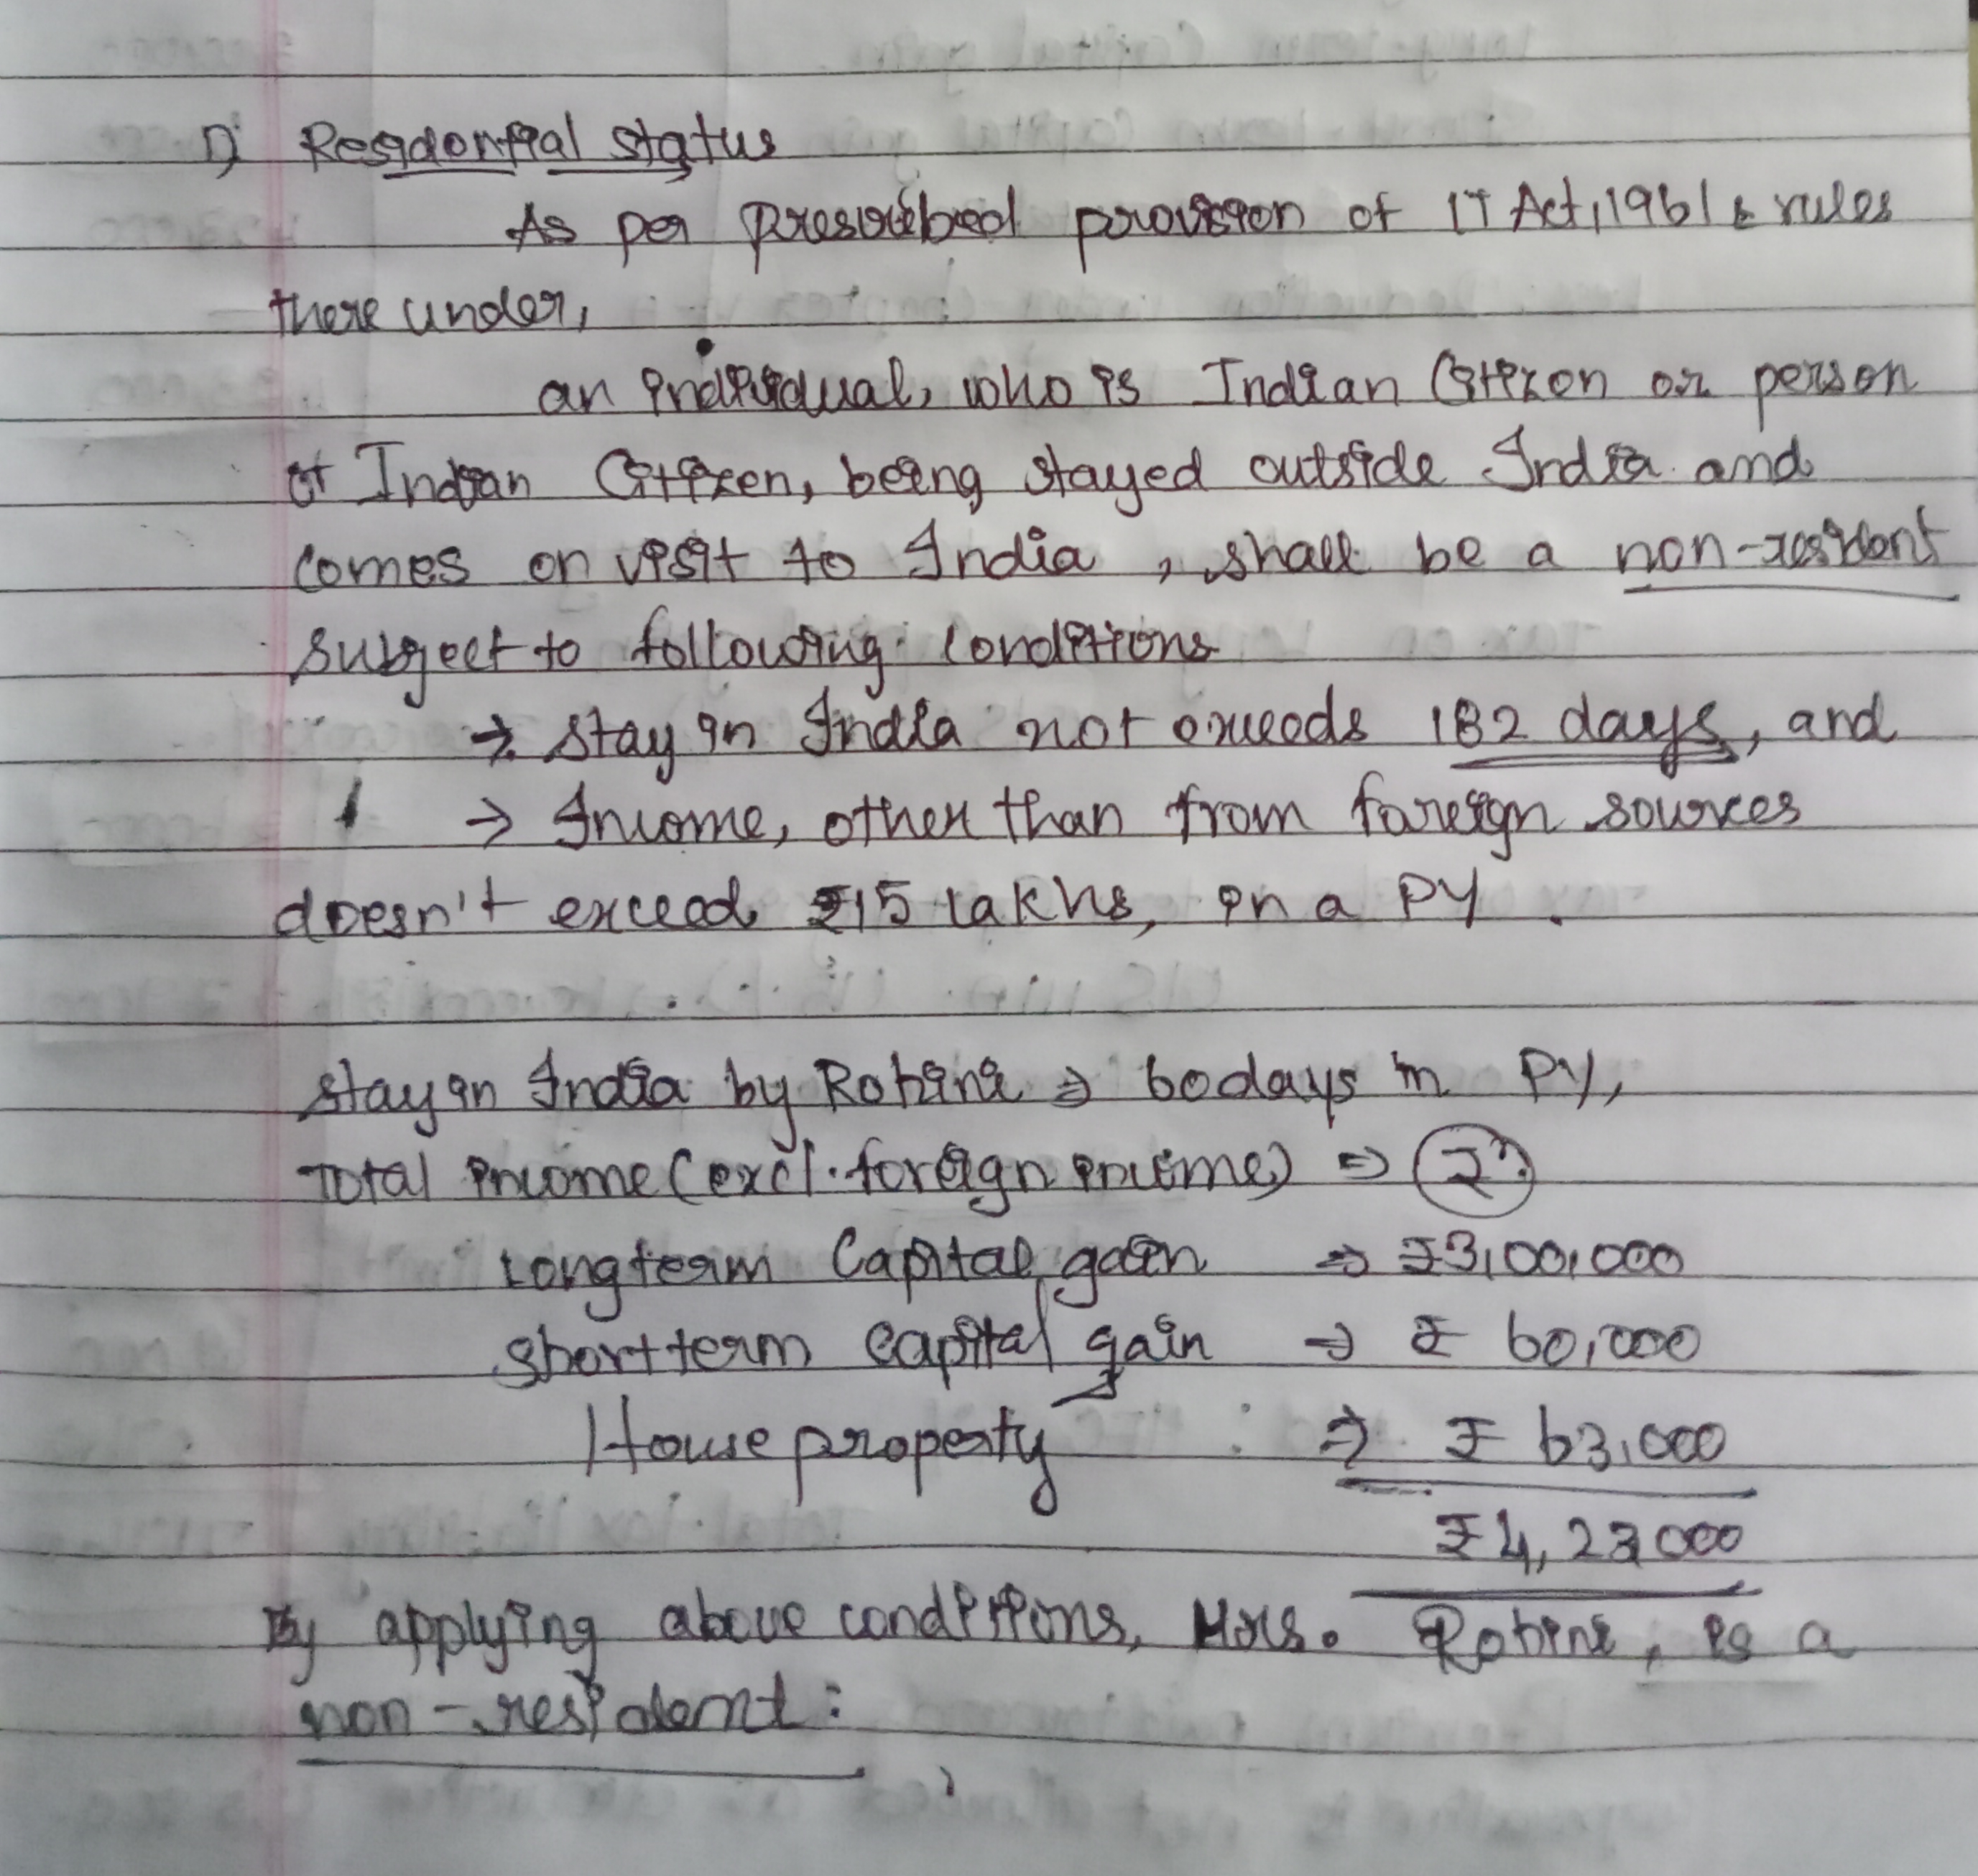 1) Residential status
As per prescribed provision of IT Act, 1961 & rules
there under,
an individual, who is Indian Citizen or person
of Indian Citizen, being stayed outside India and
comes on visit to India, shall be a non-resident
subject to following conditions
→ stay in India not exceeds 182 days, and
→ Income, other than from foreign sources
doesn't exceed ₹15 lakhs, in a PY.
stay in India by Rohini ⇒ 60 days in PY,
Total income (excl. foreign income) ⇒
Long term Capital gain ⇒ ₹3,00,000
short term capital gain ⇒ ₹ 60,000
House property ⇒ ₹ 63,000
₹4,23,000
By applying above conditions, Mrs. Rohini, is a
non-resident: